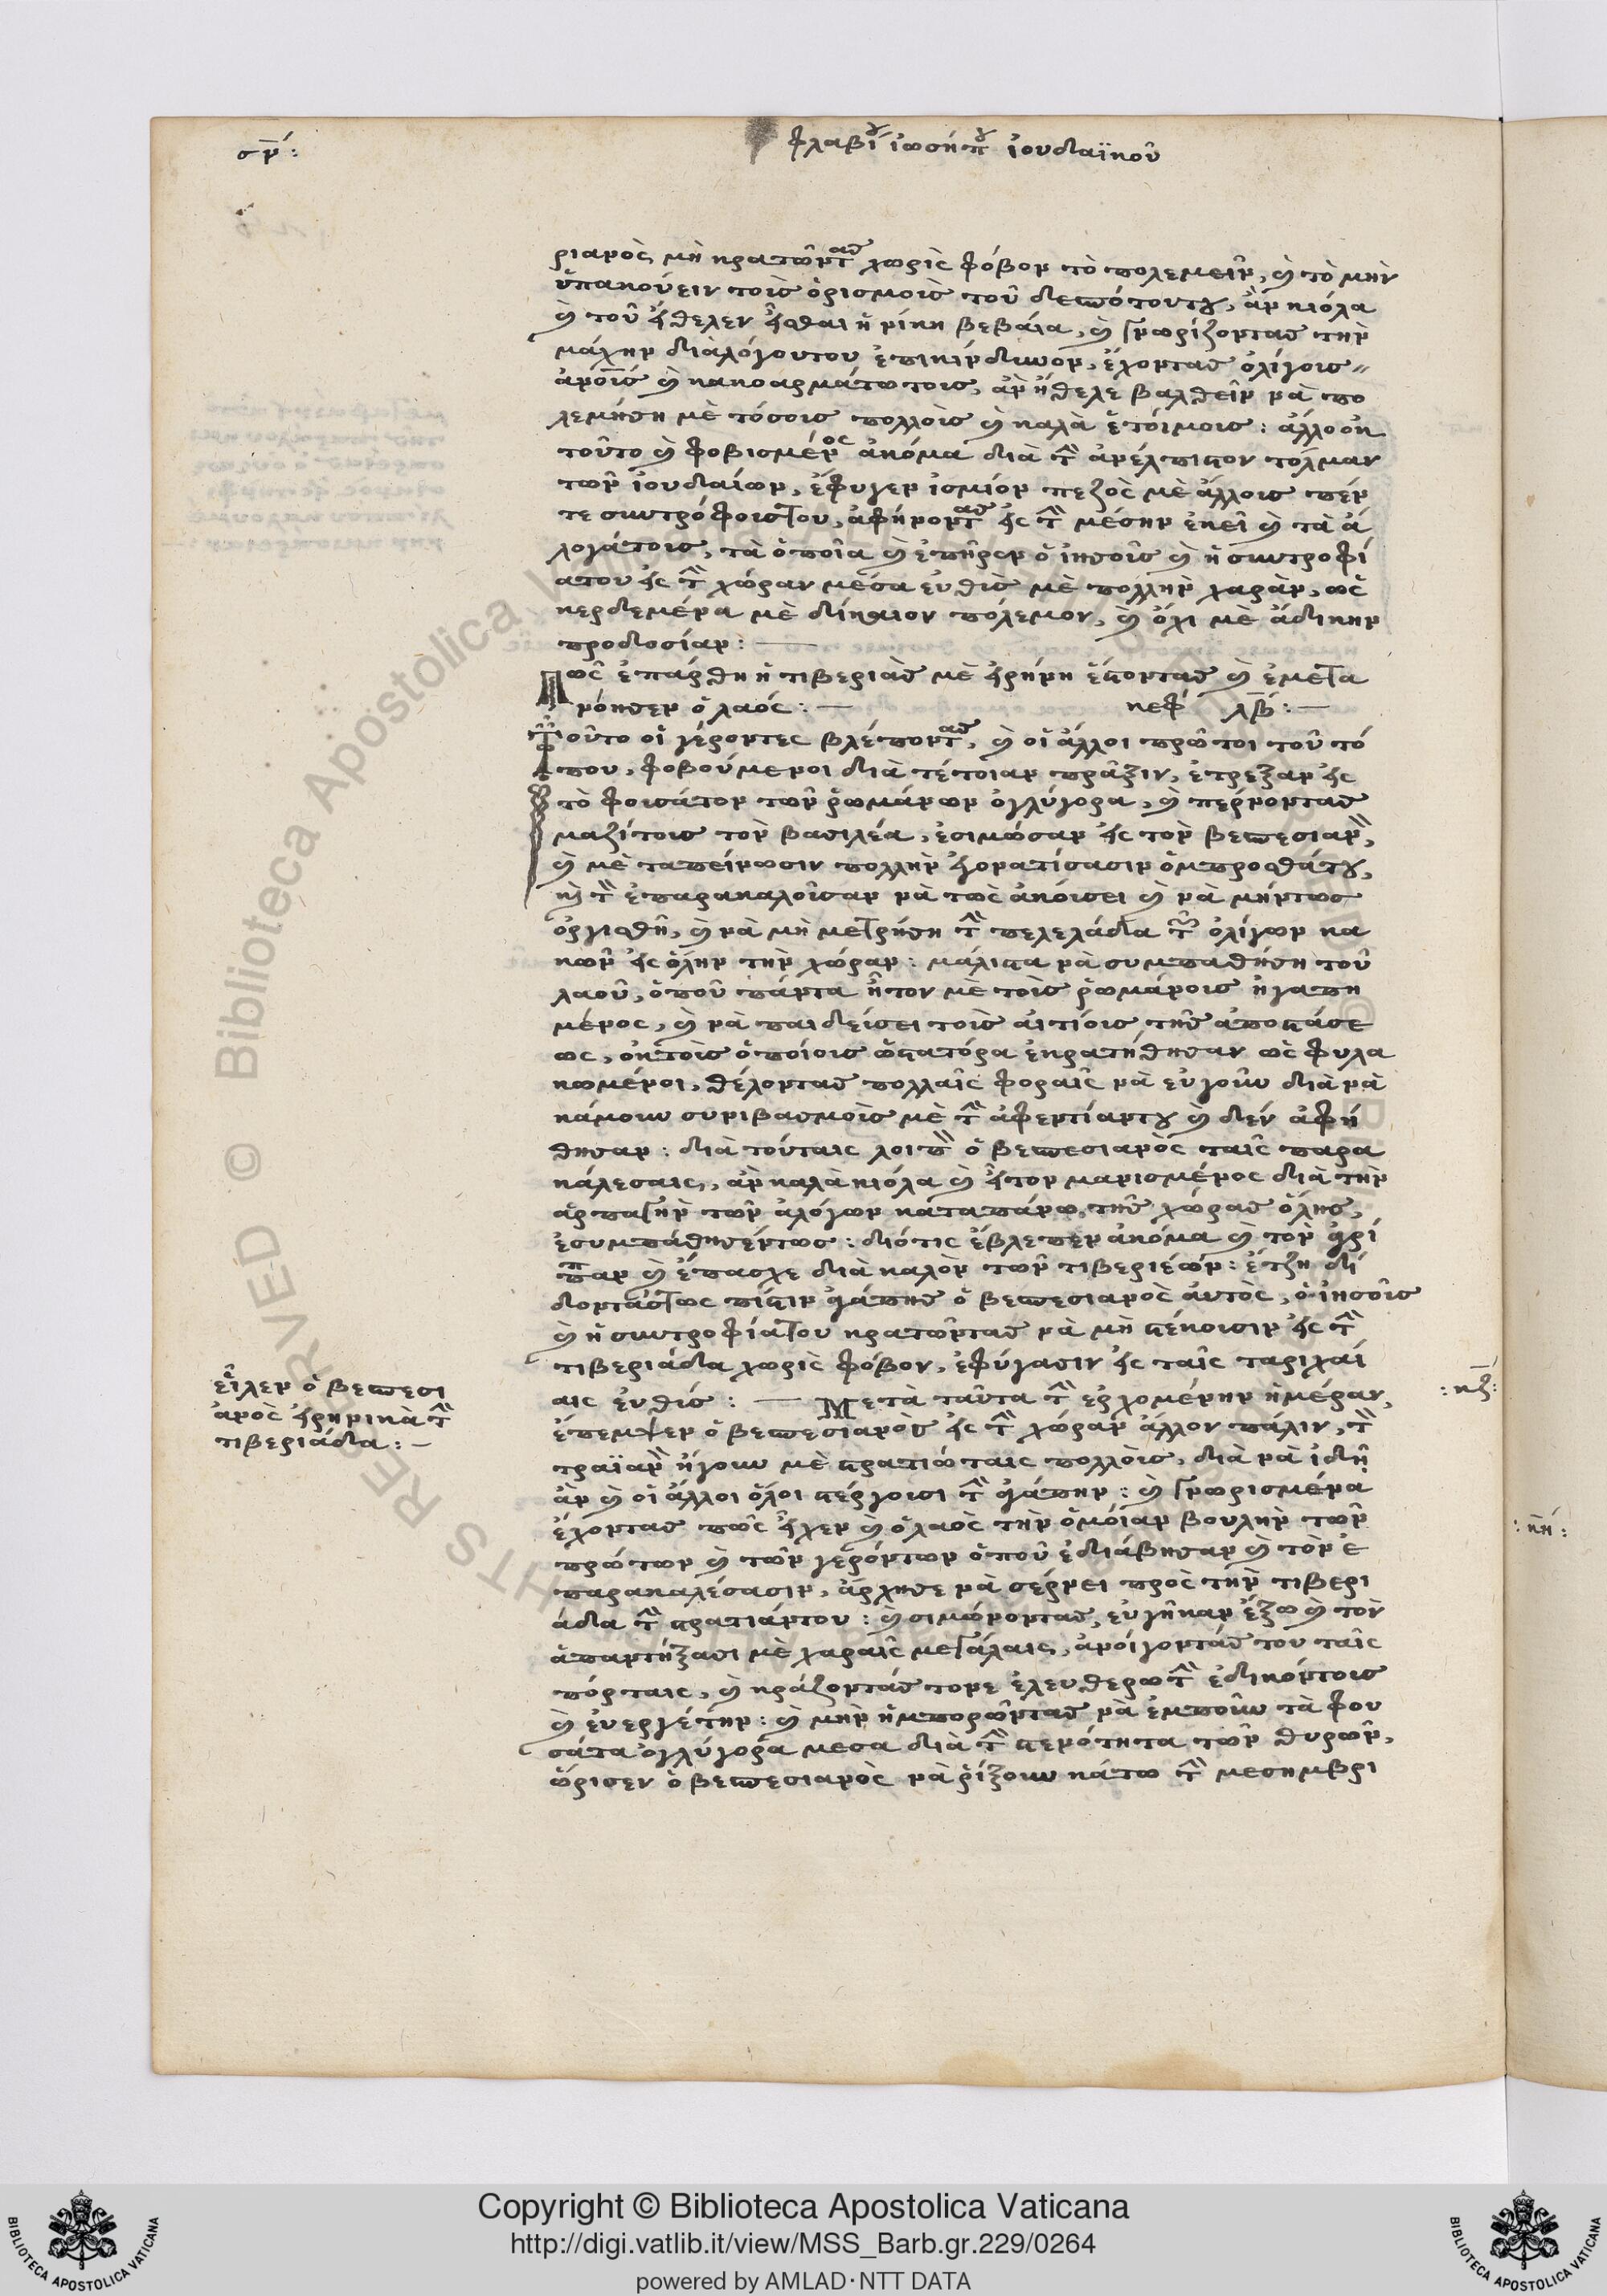 σν̅:
φλαβίου ἰωσήπου ἰουδαϊκοῦ
ριανὸς, μὴ κρατῶντας χωρὶς φόβον τὸ πολεμεῖν, καὶ τὸ μὴν
ὑπακούειν τοῖς ὁρισμοῖς τοῦ δεσπότουτου, ἂν κιόλα
καὶ τοῦ ἤθελεν εἶσθαι ἡ νίκη βεβάια, καὶ γνωρίζοντας τὴν
μάχην διαλόγουτου ἐπικίνδυνον, ἔχοντας ὀλίγοις
ἀνοῖς καὶ κακοαρμάτωτοις, ἂν ἤθελε βαλθεῖν νὰ πο
λεμήση μὲ τόσοις πολλοῖς καὶ καλὰ ἑτοίμοις: ἀλλοοὐκ
τοῦτο καὶ φοβισμένος ἀκόμα διὰ τὴν ἀνέλπιστον τόλμαν
τῶν ἰουδαίων, ἔφυγεν ἰσμιὸν πεζὸς μὲ ἄλλοις πέν
τε συντρόφοιστου, ἀφήνοντας εἰς τὴν μέσην ἐκεῖ καὶ τὰ ἀ
λογάτοις, τὰ ὁποῖα καὶ ἐπῆραν ὁ ἰησοῦς καὶ ἡ συντροφί
ατου εἰς τὴν χώραν μέσα ευθὺς μὲ πολλὴν χαρὰν, ὡς
κερδεμένα μὲ δίκαιον πόλεμον, καὶ ὄχι μὲ ἄδικην
προδοσίαν: —
Πῶς ἐπάρθη ἡ τιβεριὰς μὲ εἰρήνη ἕστοντας καὶ ἐμετα
νόησεν ὁ λαός: — κεφ λβ̅: —
Τοῦτο οἱ γέροντες βλέποντας, καὶ οἱ ἄλλοι πρῶτοι τοῦ τό
που, φοβούμενοι διὰ τέτοιαν πρᾶξιν, ἔτρεξαν εἰς
τὸ φουσάτον τῶν ῥωμάνων ὀγλύγορα, καὶ πέρνοντας
μαζίτοις τὸν βασιλέα, ἐσιμώσαν εἰς τὸν βεσπεσιανὸν,
καὶ μὲ ταπείνωσιν πολλὴν εἰονατίσασιν ὀμπροσθάτου,
καὶ τὸν ἐπαρακαλοῦσαν νὰ τοὺς ἀκούσει καὶ νὰ μήντως
ὀργισθῆ, καὶ νὰ μὴ μετρήση τὴν πελελάδα τῶν ὀλίγων κα
κῶν εἰς ὅλην τὴν χώραν: μάλιστα νὰ συμπαθήση τοῦ
λαοῦ, ὁποῦ πάντα ἦτον μὲ τοὺς ῥωμάνοις ἠγαπη
μένος, καὶ νὰ παιδεύσει τοὺς αἰτίοις τῆς ἀποστάσε
ως, οκτοῖς ὁποίοις ὥστατόρα ἐκρατήθησαν ὡς φυλα
κωμένοι, θέλοντας πολλαῖς φοραῖς νὰ εὐγοῦν διὰ νὰ
κάμουν συνιβασμοὺς μὲ τὴν ἀφεντίαντου καὶ δὲν ἀφή
θησαν: διὰ τούταις λοιπὸν ὁ βεσπεσιανὸς ταῖς παρα
κάλεσαις, ἂν καλὰ κιόλα καὶ εἶτον μανισμένος διὰ τὴν
ἁρπαγὴν τῶν ἀλόγων κάταπάνω τῆς χώρας ὅλης,
ἐσυμπάθησέντως: διότις ἔβλεπεν ἀκόμα καὶ τὸν ἀγρί
ππαν καὶ ἔπασχε διὰ καλὸν τῶν τιβεριέων: ἔτζη δί
δοντάςτως πίστιν ἀγάπης ὁ βεσπεσιανὸς ἀυτὸς, ὁ ἰησοῦς
καὶ ἡ συντροφίατου κρατῶντας νὰ μὴ στέκοισιν εἰς τὴν
τιβεριάδα χωρὶς φόβον, ἐφύγασιν εἰς ταῖς ταριχαί
αις ἐυθύς: — Μετὰ ταῦτα τὴν ἐρχομένην ἡμέραν,
ἔπεμψεν ὁ βεσπεσιανὸς εἰς τὴν χώραν ἄλλον πάλιν, τὸν
τραϊανὸν ἤγουν μὲ στρατιώταις πολλοὺς, διὰ νὰ ἰδῆ
ἂν καὶ οἱ ἄλλοι ὅλοι στέργοισι τὴν ἀγάπην: καὶ γνωρισμένα
ἔχοντας πῶς εἶχεν καὶ ὁ λαὸς τὴν ὁμόιαν βουλὴν τῶν
πρώτων καὶ τῶν γερόντων ὁποῦ ἐδιάβησαν καὶ τὸν ἐ
παρακαλέσασιν, ἄρχησε νὰ σέρνει πρὸς τὴν τιβερι
άδα τὴν στρατιάντου: καὶ σιμώνοντας, εὐγῆκαν ἔξω καὶ τὸν
ἀπαντήξασι μὲ χαραῖς μεγάλαις, ἀνοίγοντάς του ταῖς
πόρταις, καὶ κράζοντάς τονε ἐλευθερωτὴν ἐδικόντοις
καὶ ἐυεργέτην: καὶ μὴν ἠμπορῶντας νὰ ἐμποῦν τὰ φου
σάτα ὀγλύγορα μέσα διὰ τὴν στενότητα τῶν θυρῶν,
ὥρισεν ὁ βεσπεσιανὸς νὰ ῥίξουν κάτω τὴν μεσημβρι
εἷλεν ὁ βεσπεσι
ανὸς εἰρηνικὰ τὴν
τιβεριάδα: —
:κζ̅:
:κη̅:
Copyright © Biblioteca Apostolica Vaticana
http://digi.vatlib.it/view/MSS_Barb.gr.229/0264
powered by AMLAD·NTT DATA